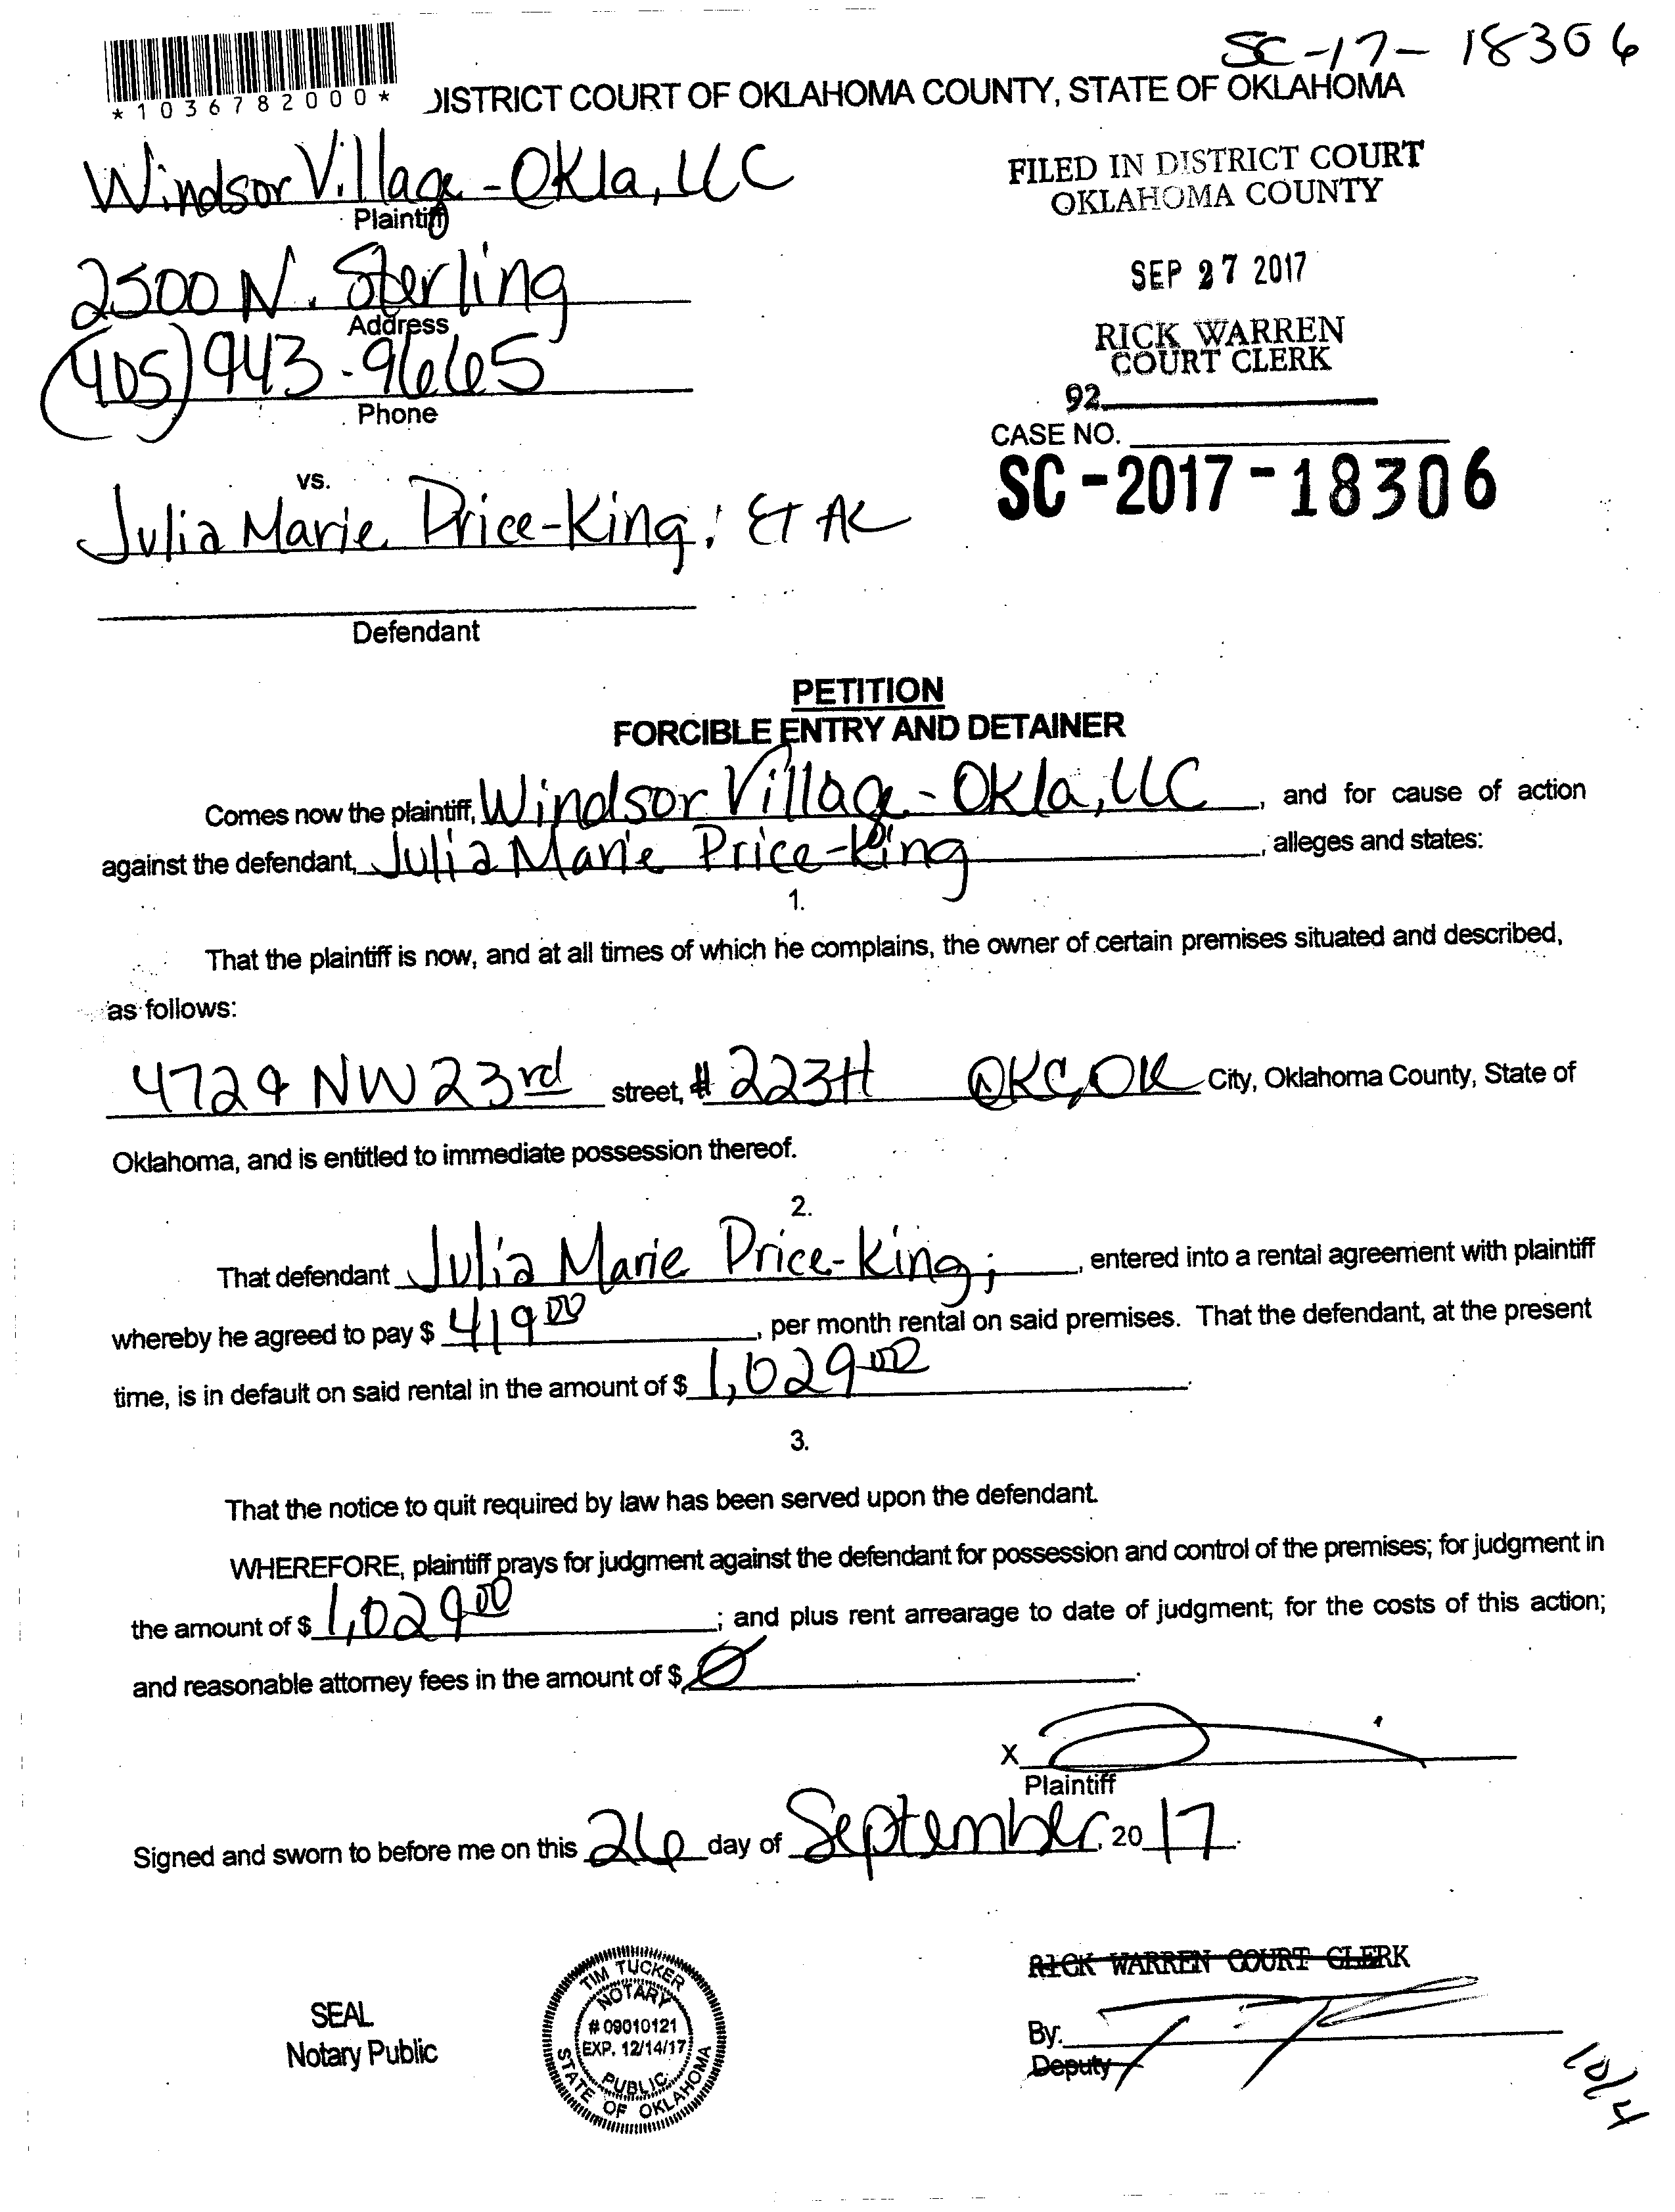 SC-17-18306
*1036782000*
DISTRICT COURT OF OKLAHOMA COUNTY, STATE OF OKLAHOMA
Windsor Village-Okla, LLC
Plaintiff
FILED IN DISTRICT COURT
OKLAHOMA COUNTY
2500 N. Sterling
Address
SEP 27 2017
(405) 943-9665
Phone
RICK WARREN
COURT CLERK
92
CASE NO.
SC-2017-18306
vs.
Julia Marie Price-King; ET AL
Defendant
PETITION
FORCIBLE ENTRY AND DETAINER
Comes now the plaintiff, Windsor Village-Okla, LLC, and for cause of action
against the defendant, Julia Marie Price-King, alleges and states:
1.
That the plaintiff is now, and at all times of which he complains, the owner of certain premises situated and described,
as follows:
4729 NW 23rd street, #223H OKC, OK City, Oklahoma County, State of
Oklahoma, and is entitled to immediate possession thereof.
2.
That defendant Julia Marie Price-King; , entered into a rental agreement with plaintiff
whereby he agreed to pay $ 419 00, per month rental on said premises. That the defendant, at the present
time, is in default on said rental in the amount of $ 1,029 00.
3.
That the notice to quit required by law has been served upon the defendant.
WHEREFORE, plaintiff prays for judgment against the defendant for possession and control of the premises; for judgment in
the amount of $ 1,029 00; and plus rent arrearage to date of judgment; for the costs of this action;
and reasonable attorney fees in the amount of $ Ø.
X
Plaintiff
Signed and sworn to before me on this 26 day of September, 20 17.
RICK WARREN COURT CLERK
SEAL
Notary Public
TIM TUCKER
NOTARY
# 09010121
EXP. 12/14/17
PUBLIC
STATE OF OKLAHOMA
By:
Deputy
10/4